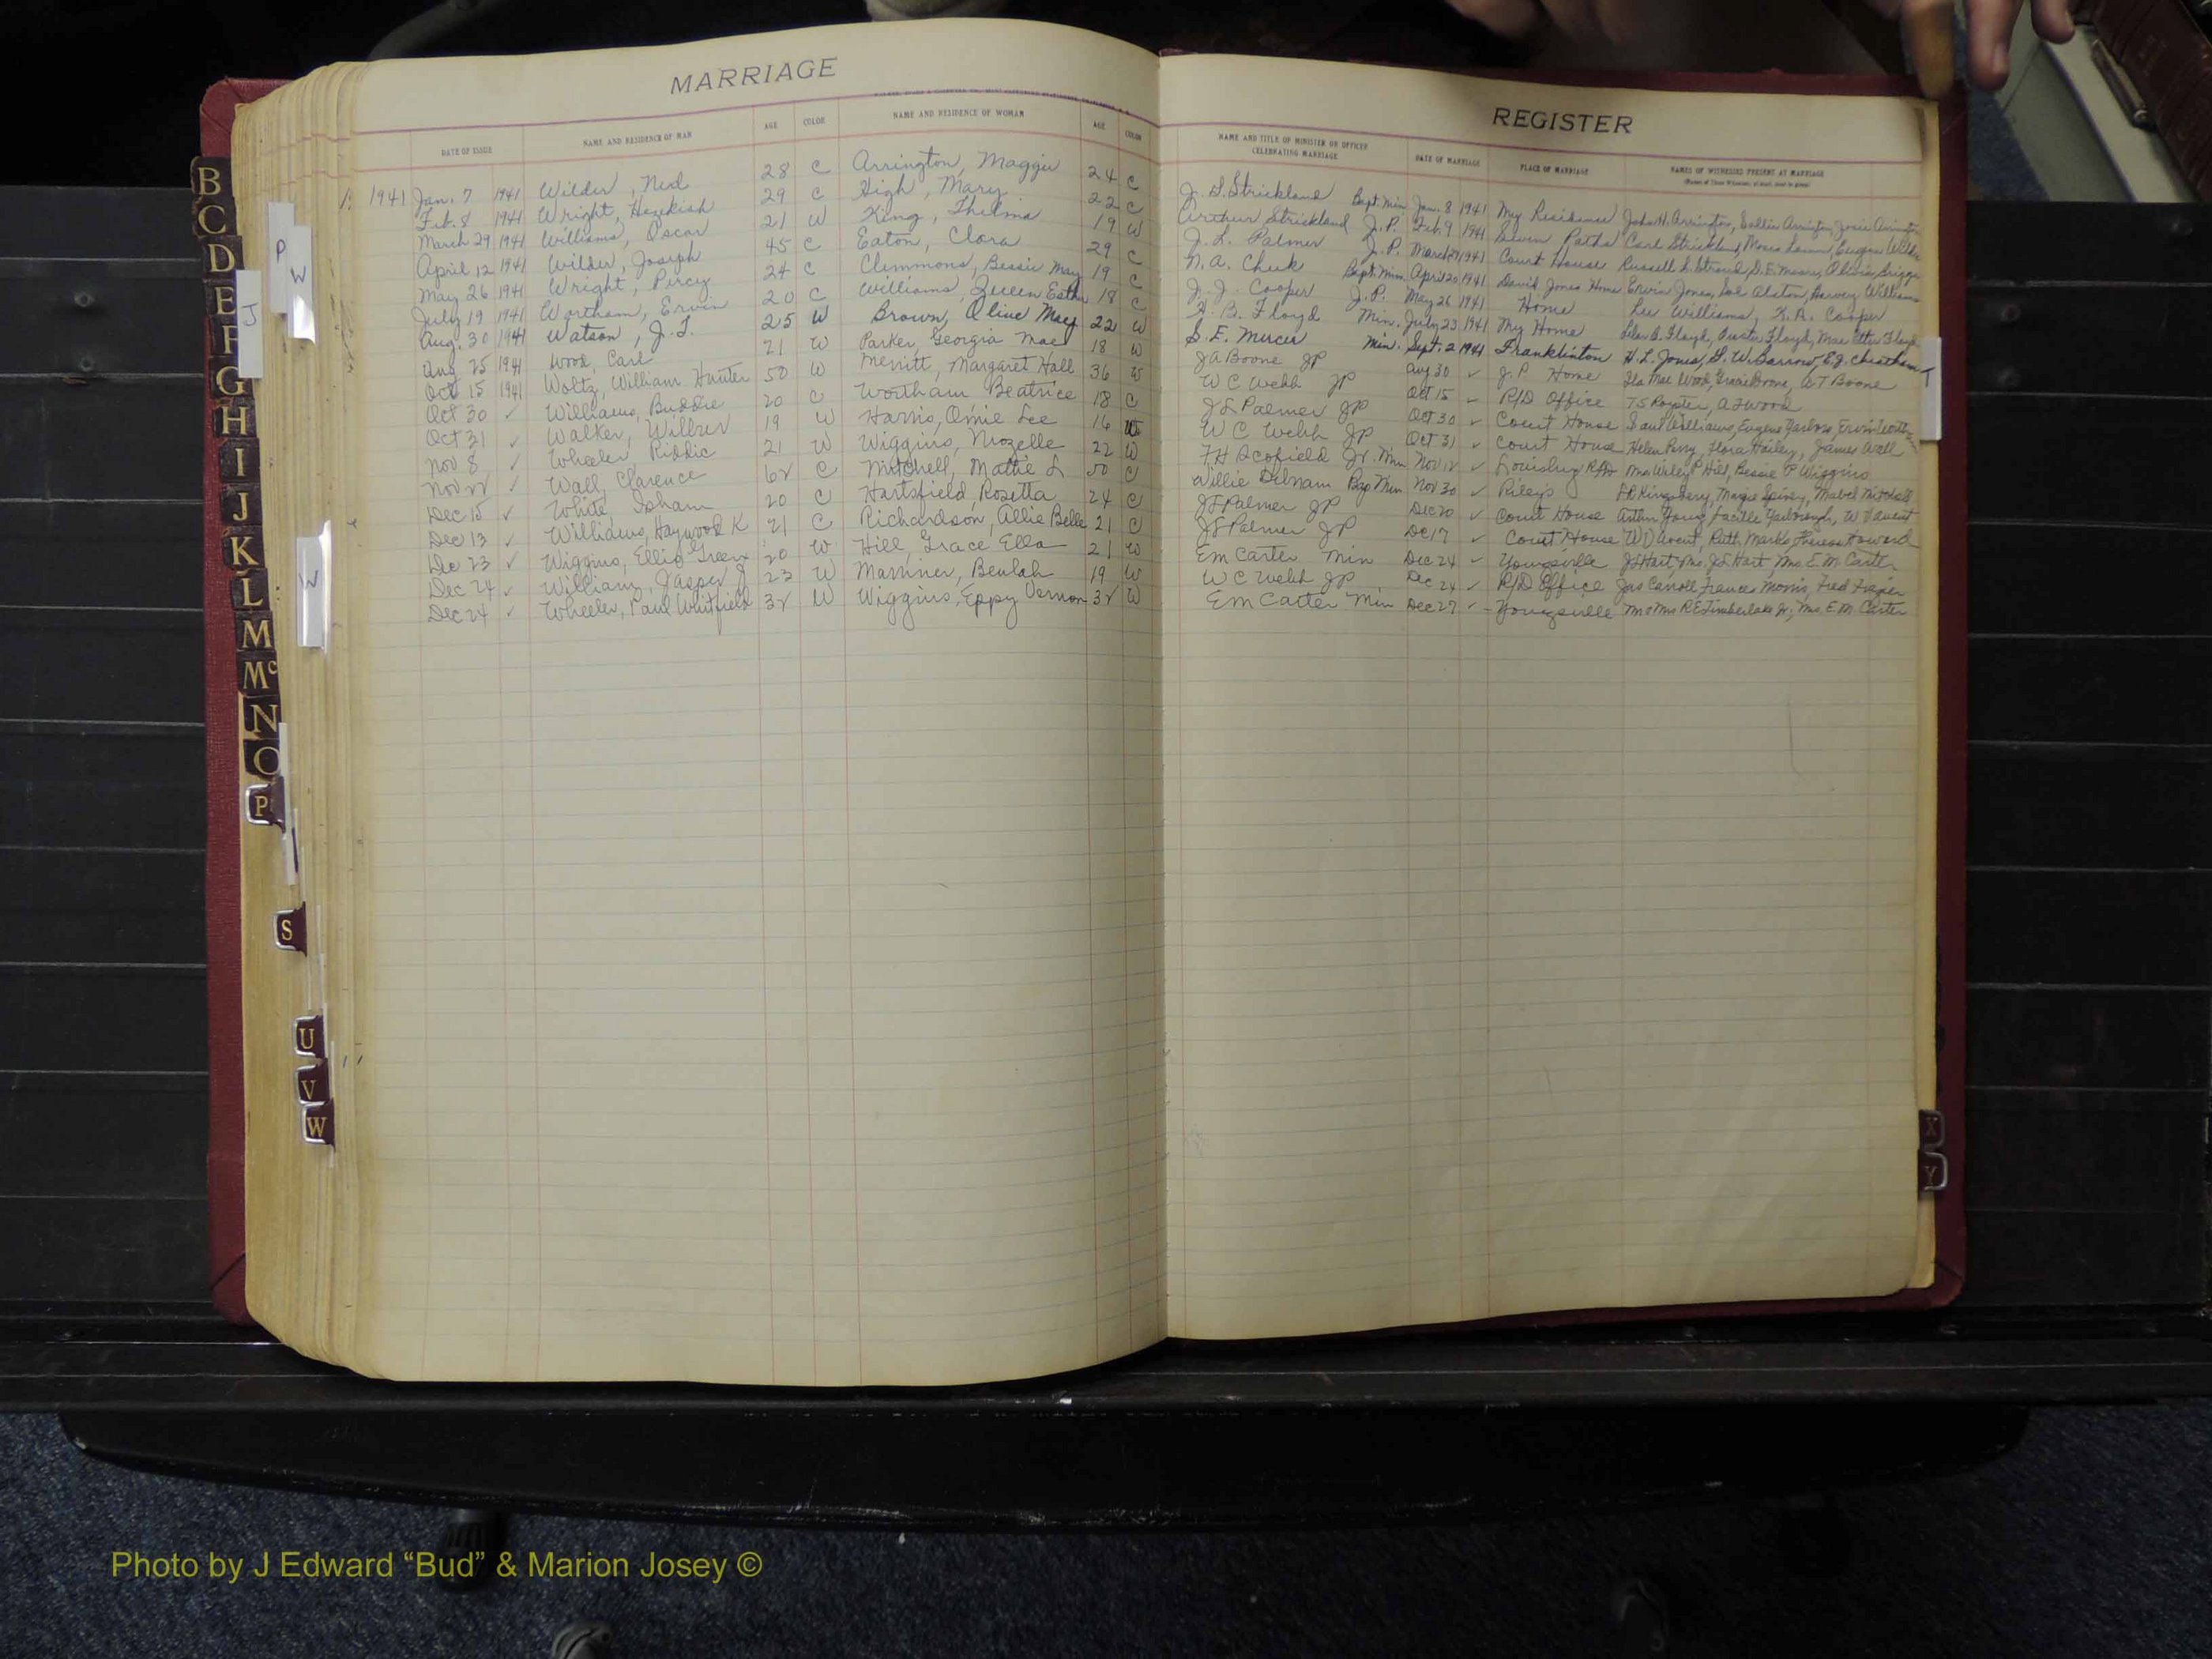 MARRIAGE
DATE OF ISSUE NAME AND RESIDENCE OF MAN AGE COLOR NAME AND RESIDENCE OF WOMAN AGE COLOR
1941 Jan. 7 1941 Wilder, Ned 28 C Arrington, Maggie 24 C
Feb. 8 1941 Wright, Hezekiah 29 C High, Mary 22 C
March 29 1941 Williams, Oscar 21 W King, Thelma 19 W
April 12 1941 Wilder, Joseph 45 C Eaton, Clora 29 C
May 26 1941 Wright, Percy 24 C Clemmons, Bessie May 19 C
July 19 1941 Wortham, Ervin 20 C Williams, Queen Esther 18 C
Aug. 30 1941 Watson, J. T. 25 W Brown, Olive May 22 W
Aug 25 1941 Wood, Carl 21 W Parker, Georgia Mae 18 W
Oct 15 1941 Woltz, William Hunter 50 W Merritt, Margaret Hall 36 W
Oct 30 ✓ Williams, Buddie 20 C Wortham Beatrice 18 C
Oct 31 ✓ Walker, Wilber 19 W Harris, Omie Lee 16 W
Nov 8 ✓ Wheeler Riddic 21 W Wiggins, Mozelle 22 W
Nov 22 ✓ Wall, Clarence 62 C Mitchell, Mattie L 50 C
Dec 15 ✓ White Isham 20 C Hartsfield, Rosetta 24 C
Dec 13 ✓ Williams, Haywood K 21 C Richardson, Allie Belle 21 C
Dec 23 ✓ Wiggins, Ellis Green 20 W Hill, Grace Ella 21 W
Dec 24 ✓ William, Jasper J 23 W Marriner, Beulah 19 W
Dec 24 ✓ Wheeler, Paul Whitfield 32 W Wiggins, Eppy Vernon 32 W
REGISTER
NAME AND TITLE OF MINISTER OR OFFICER CELEBRATING MARRIAGE DATE OF MARRIAGE PLACE OF MARRIAGE NAMES OF WITNESSES PRESENT AT MARRIAGE
J. S. Strickland Bapt. Min. Jan. 8 1941 My Residence John H. Arrington, Sallie Arrington, Josie Arrington
Arthur Strickland J. P. Feb. 9 1941 Seven Paths Carl Strickland, Moses
J. L. Palmer J. P. March 29 1941 Court House Russell L. Stroud, S. E. Moore,
N. A. Cheek Bapt. Min. April 20 1941 David Jones Home Ervin Jones, Sol Alston, Harvey Williams
J. J. Cooper J. P. May 26 1941 Home Lee Williams, K. A. Cooper
B. Floyd Min. July 23 1941 My Home B. Floyd, Floyd, Mae Etta Floyd
S. E. Mercer Min. Sept. 2 1941 Franklinton H. L. Jones, S. W. Barrow, E. J. Cheatham
J A Boone JP Aug 30 ✓ J. P Home Ila Mae Wood, Gracie Boone, A T Boone
W C Webb JP Oct 15 ✓ R/D Office T S Royster, A F Wood
J L Palmer JP Oct 30 ✓ Court House Saul Williams, Eugene Yarboro, Ervin Wortham
W C Webb JP Oct 31 ✓ Court House Helen Perry, Flora Hailey, James Wall
F H Scofield Jr. Min Nov 12 ✓ Louisburg Mrs Wiley P Hill, Bessie P Wiggins
Willie Bap Min Nov 30 ✓ Riley's Kingsbery, Margie Spivey, Mabel Mitchell
J L Palmer JP Dec 20 ✓ Court House Arthur Young, Lucille Yarborough, W D Avent
J L Palmer JP Dec 17 ✓ Court House W D Avent, Ruth Marks, Theresa Howard
E M Carter Min Dec 24 ✓ Youngsville J S Hart, Mrs. J S Hart, Mrs. E. M. Carter
W C Webb JP Dec 24 ✓ R/D Office Jas Carroll, Frances Morris, Fred Frazier
E M Carter Min Dec 27 ✓ Youngsville Mr & Mrs R E Timberlake Jr, Mrs. E M Carter
B
C
D
E
F
G
H
I
J
K
L
M
Mc
N
O
P
S
U
V
W
P
W
J
W
T
X
Y
Photo by J Edward “Bud” & Marion Josey ©